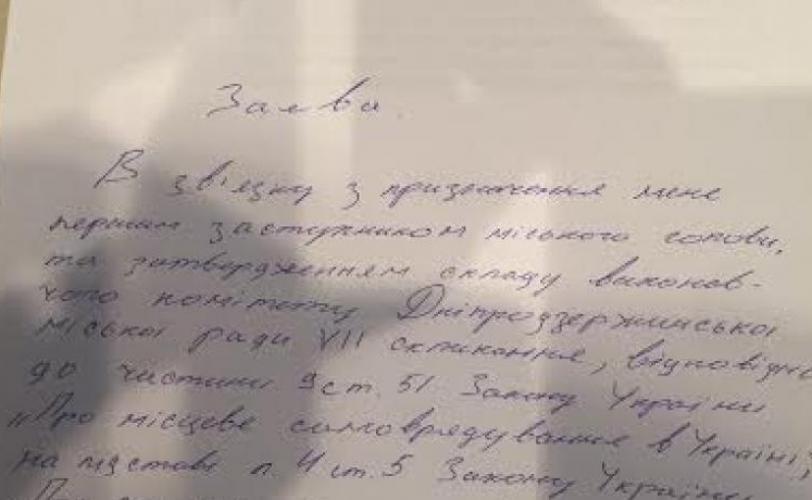 Заява.
В зв'язку з призначення мене
першим заступником міського голови,
та затвердженням складу виконав-
чого комітету Дніпродзержинської
міської ради VII скликання, відповідно
до частини 9 ст. 51 Закону України
"Про місцеве самоврядування в Україні",
на підставі п. 4 ст. 5 Закону України
"Про